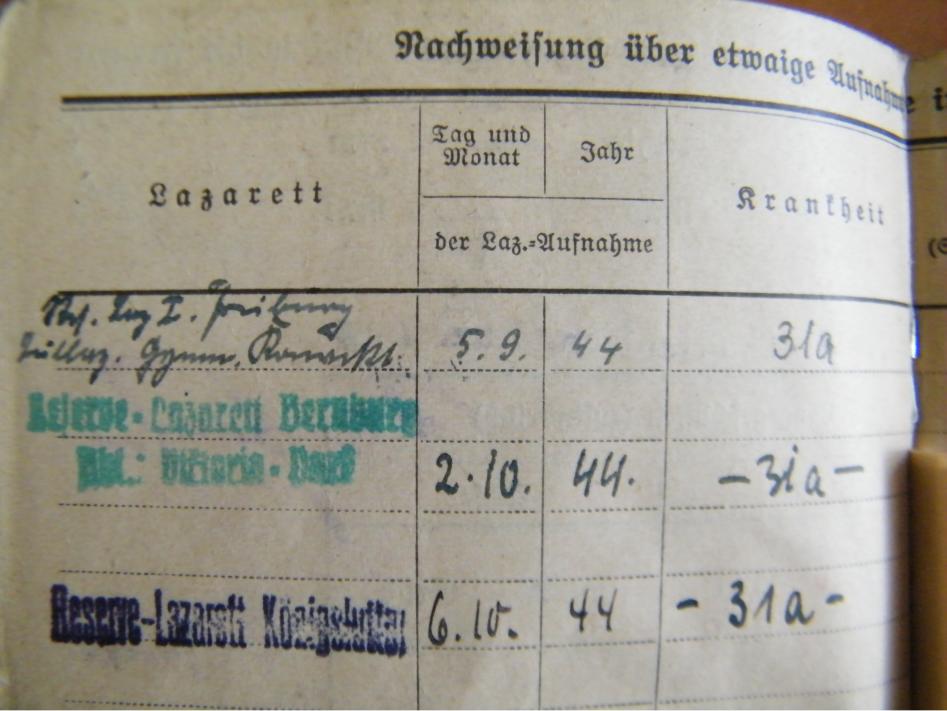 Nachweisung über etwaige Aufnahme i
Lazarett
Tag und
Monat
Jahr
der Laz.=Aufnahme
Krankheit
(S
Res. Laz I. Freiburg
Gymn. 5. 9. 44 31a
Reserve-Lazarett Bernburg
Abt.: Viktoria-Park
2.10. 44. -31a-
Reserve-Lazarett Königslutter 6.10. 44 -31a-